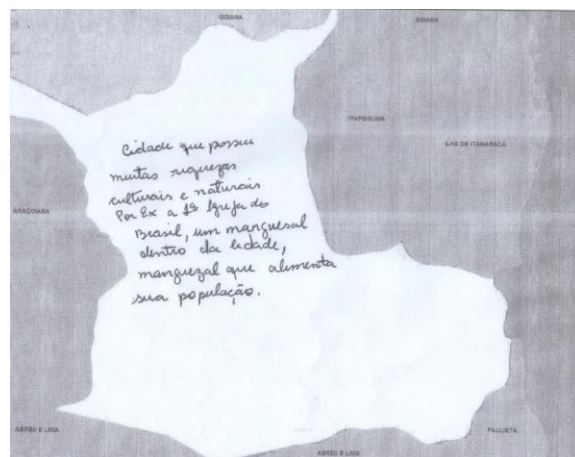 GOIANA
GOIANA
ITAPISSUMA
ILHA DE ITAMARACÁ
ARAÇOIABA
Cidade que possui
muitas riquezas
culturais e naturais
Por Ex a 1ª Igreja do
Brasil, um manguesal
dentro da cidade,
manguezal que alimenta
sua população.
ABREU E LIMA
ABREU E LIMA
PAULISTA